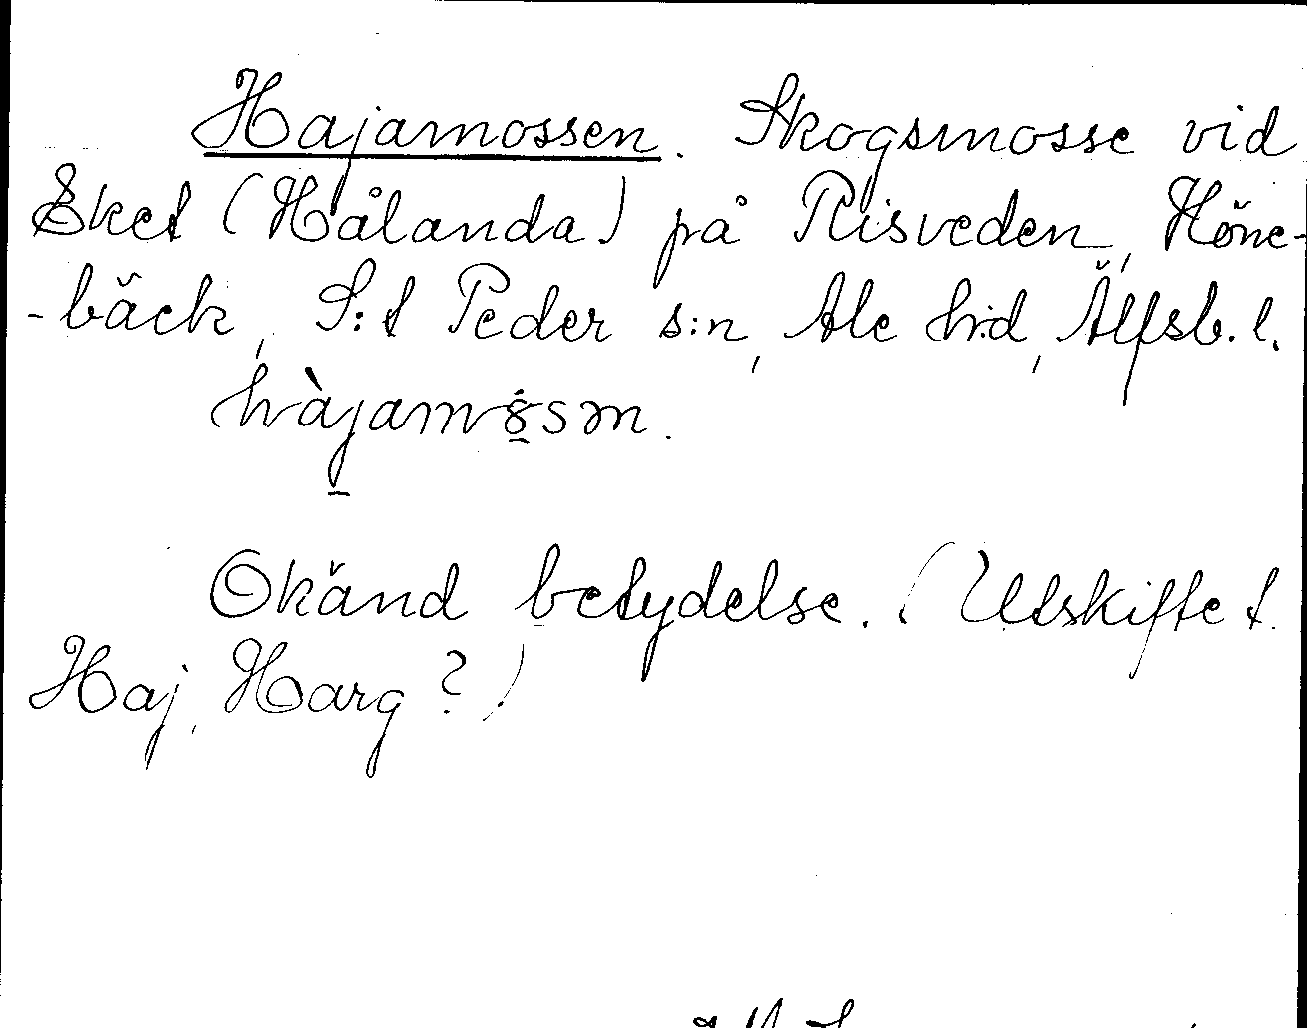 Hajamossen. Skogsmosse vid
Eket (Hålanda) på Risveden, Höne-
-bäck, S:t Peder s:n, Ale h:d, Älfsb. l.
Okänd betydelse. (Utskiftet.
Haj, Harg?)